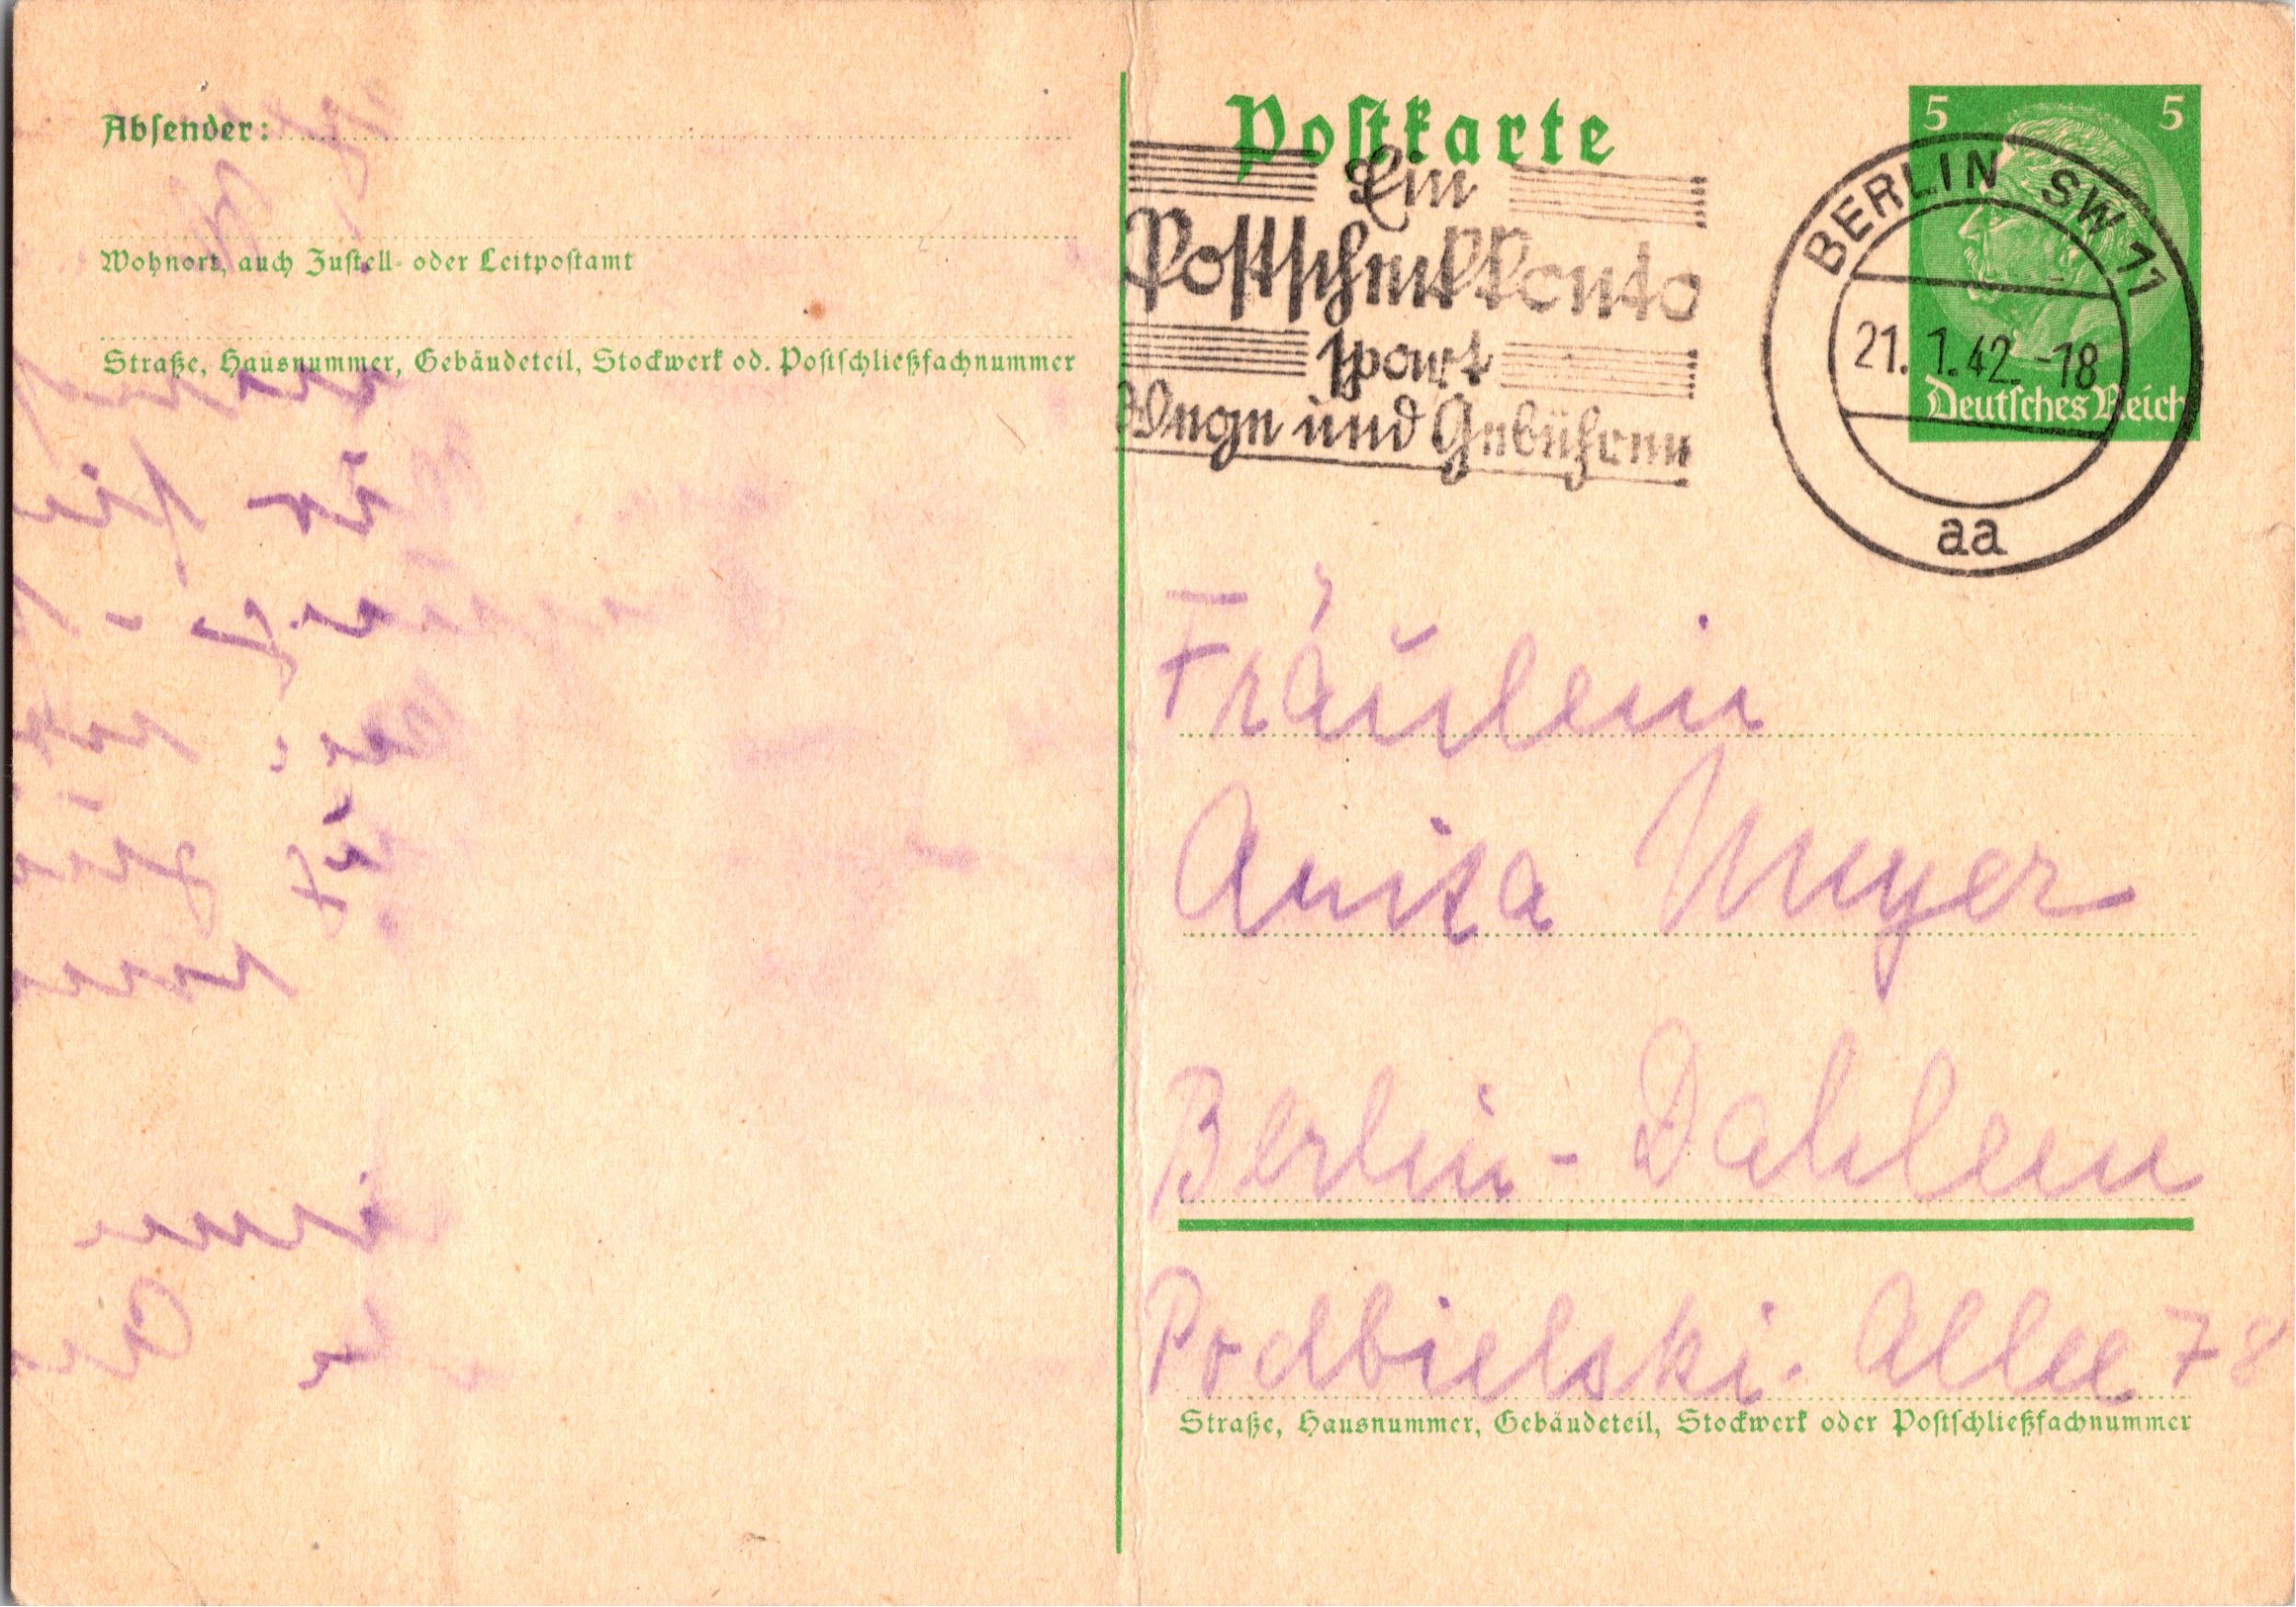 Absender:
Wohnort, auch Zustell- oder Leitpostamt
Straße, Hausnummer, Gebäudeteil, Stockwerk od. Postschließfachnummer
Postkarte
5 5
Deutsches Reich
Ein
Postscheckkonto
spart
Wege und Gebühren
BERLIN SW 11
21.1.42.-18
aa
Fräulein
Anita Meyer
Berlin-Dahlem
Podbielski-Allee 78
Straße, Hausnummer, Gebäudeteil, Stockwerk oder Postschließfachnummer